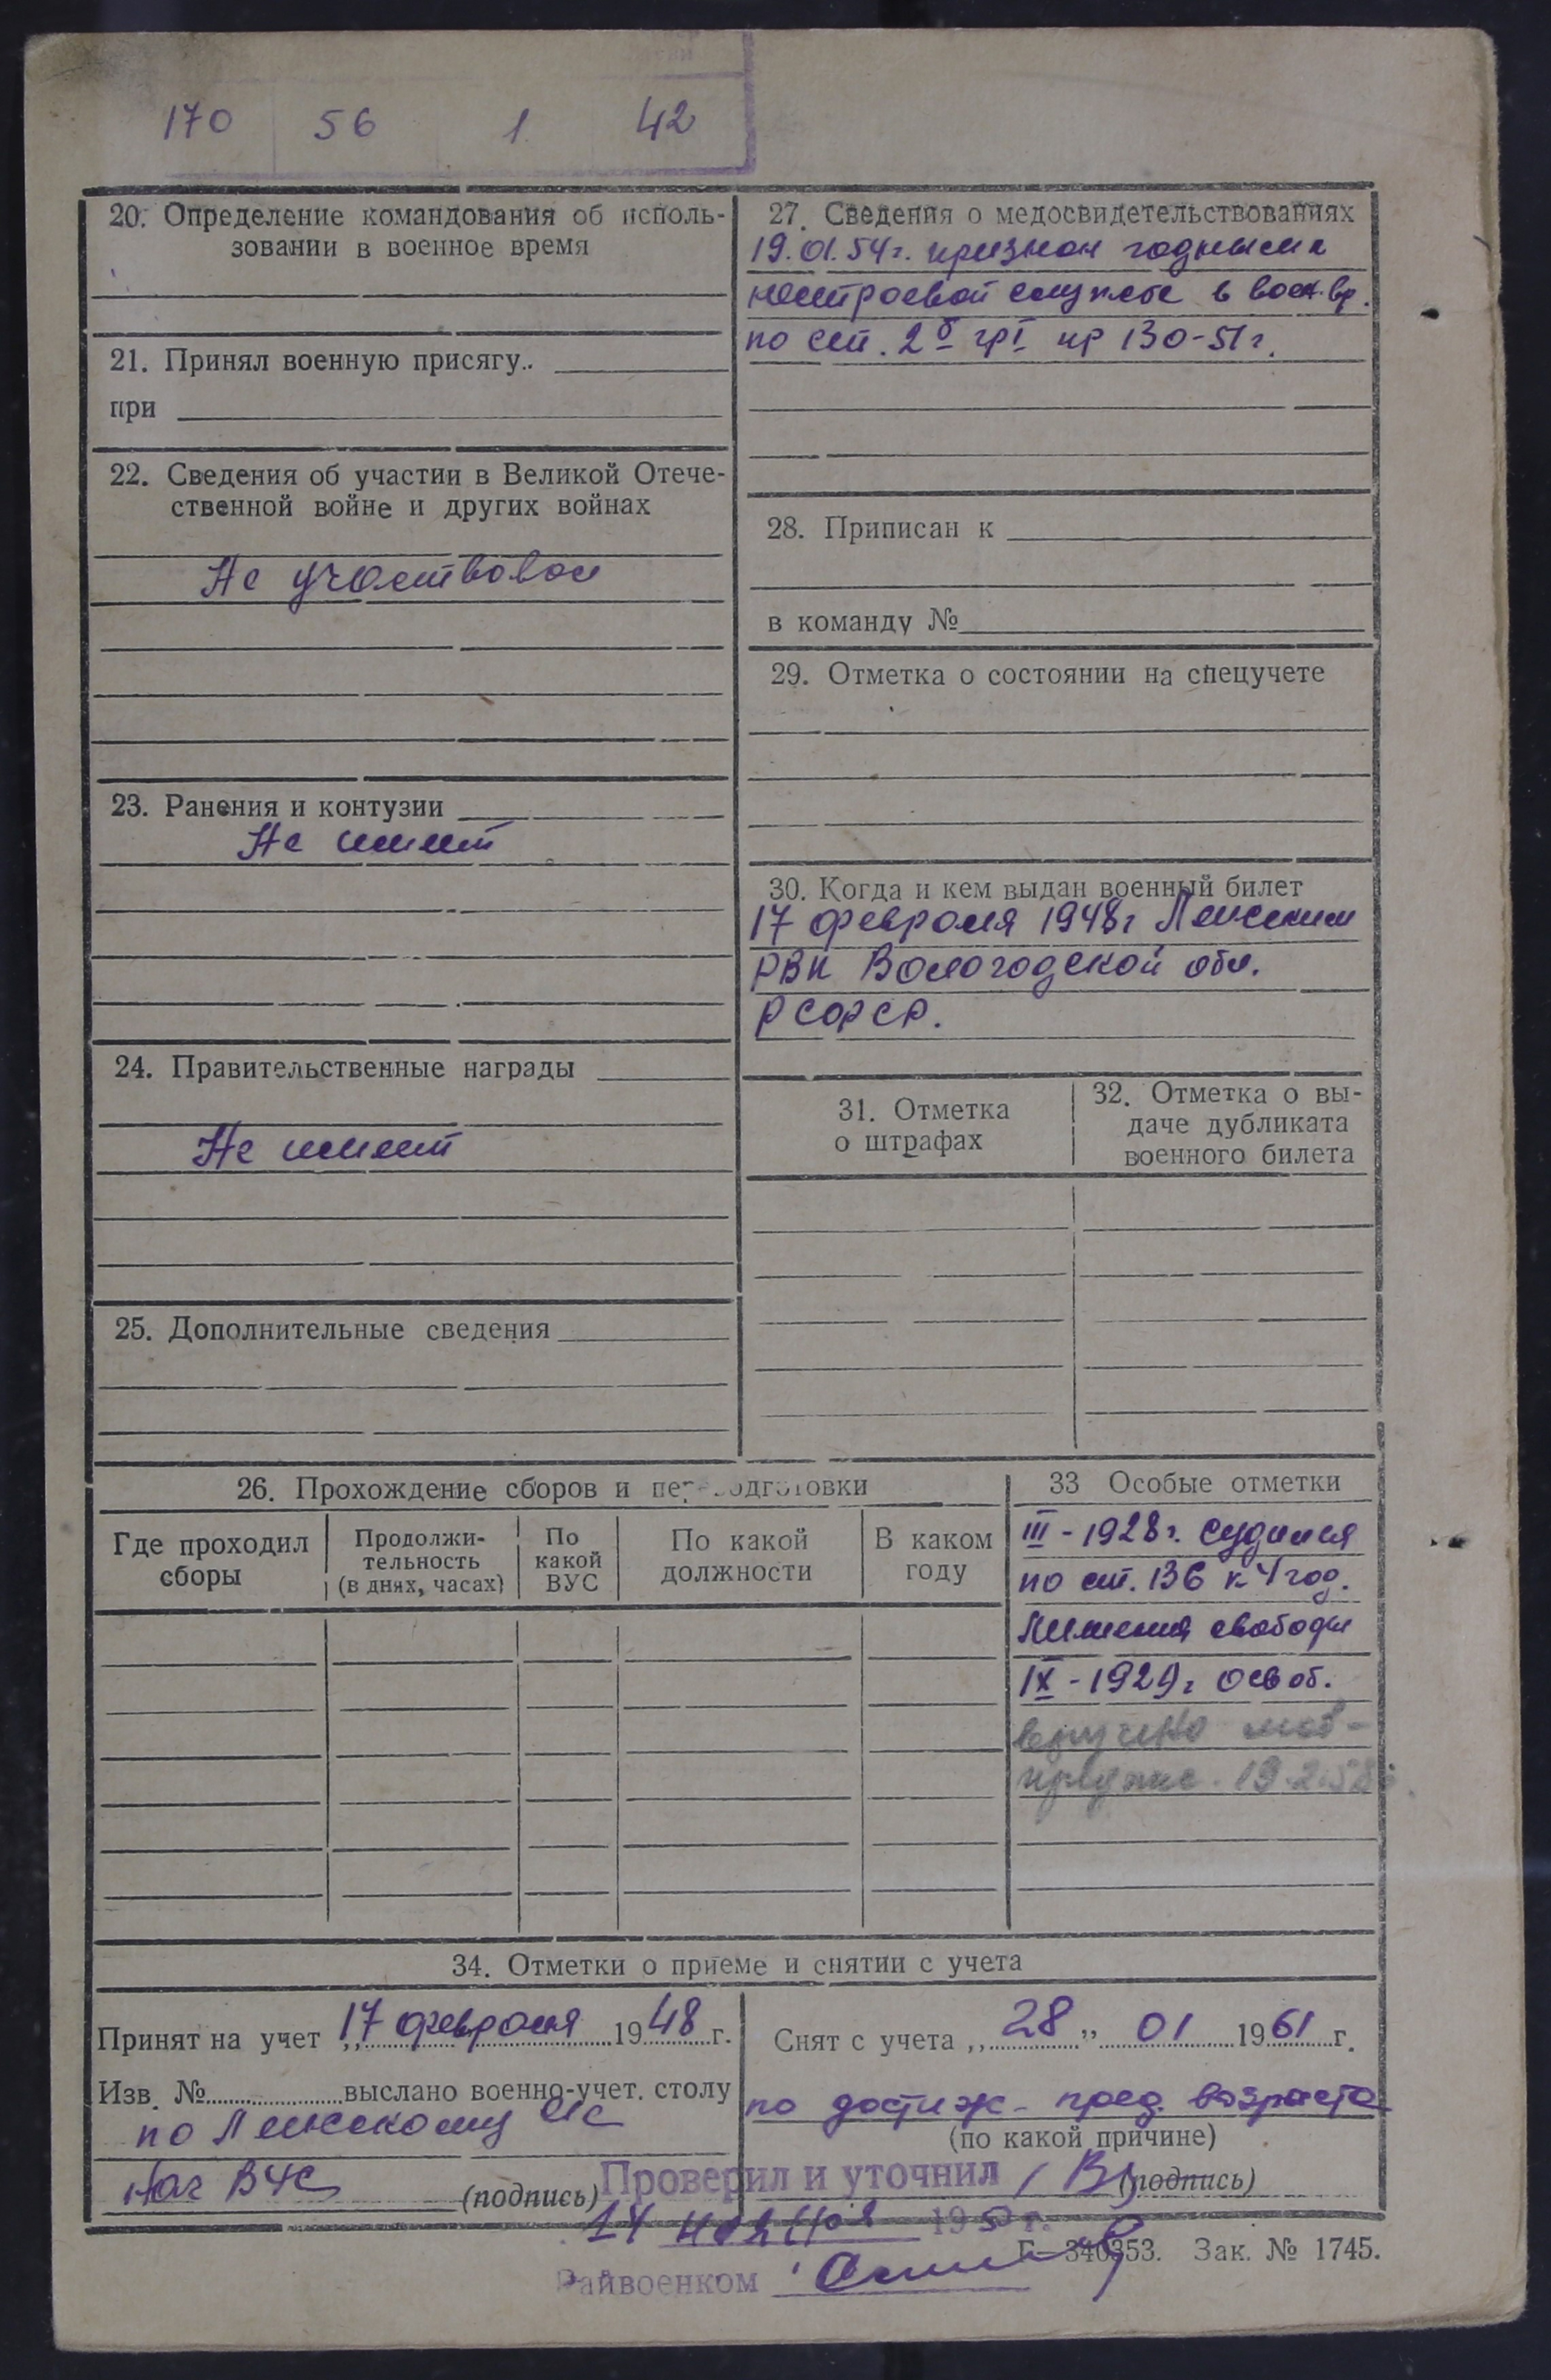 170 56 1 42
20. Определение командования об исполь-
зовании в военное время
21. Принял военную присягу..
при
22. Сведения об участии в Великой Отече-
ственной войне и других войнах
Не участвовал
23. Ранения и контузии
Не имеет
24. Правительственные награды
Не имеет
25. Дополнительные сведения
27. Сведения о медосвидетельствованиях
19.01.54г. признан годным к
нестроевой службе в воен.вр.
по ст. 2б грI пр 130-51г.
28. Приписан к
в команду №
29. Отметка о состоянии на спецучете
30. Когда и кем выдан военный билет
17 февраля 1948г Ленским
РВК Вологодской обл.
РСФСР.
31. Отметка
о штрафах
32. Отметка о вы-
даче дубликата
военного билета
26. Прохождение сборов и переподготовки
Где проходил
сборы
Продолжи-
тельность
(в днях, часах)
По
какой
ВУС
По какой
должности
В каком
году
33 Особые отметки
III-1928г. судился
по ст. 136 к 4 год.
лишения свободы
IX-1929г освоб.
вручено моб-
предпис. 19.2.58г.
34. Отметки о приеме и снятии с учета
Принят на учет „17 февраля 1948г.
Изв. № выслано военно-учет. столу
по Ленскому с/с
Нач ВУС (подпись)
Снят с учета „28„ 01 1961г.
по достиж. пред. возраста
(по какой причине)
(подпись)
Проверил и уточнил
14 ноября 195 г.
Г—340353. Зак. № 1745.
Райвоенком